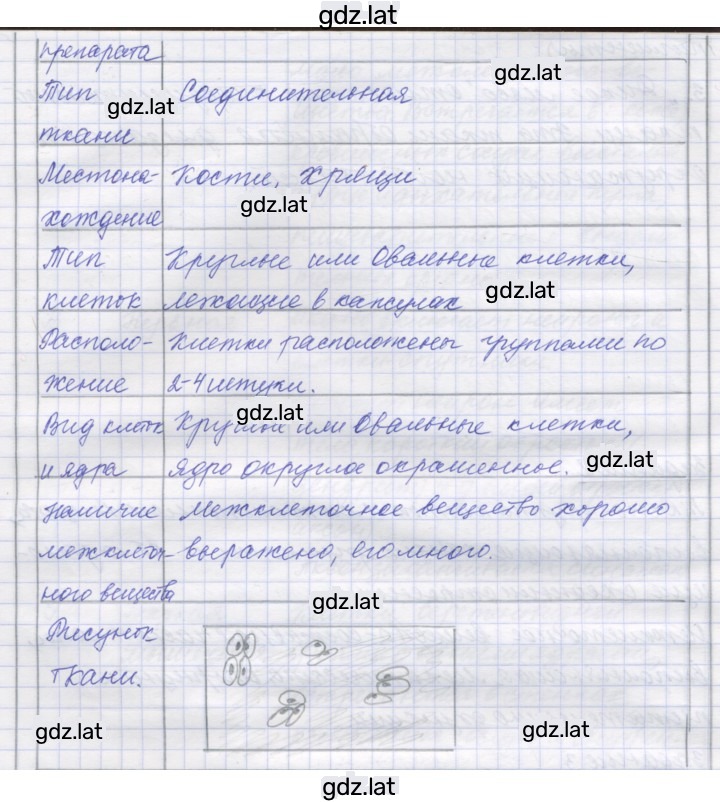 gdz.lat
препарата
gdz.lat
Тип Соединительная
gdz.lat
ткани
Местона- Кости, хрящи
gdz.lat
хождение
Тип Круглые или Овальные клетки,
клеток лежащие в капсулах gdz.lat
Располо- Клетки расположены группами по
жение 2-4 штуки.
gdz.lat
Вид клеток Круглые или Овальные клетки,
и ядра ядро округлое окрашенное. gdz.lat
Наличие Межклеточное вещество хорошо
межклеточ- выражено, его много.
ного вещества gdz.lat
Рисунок
Ткани.
gdz.lat gdz.lat
gdz.lat